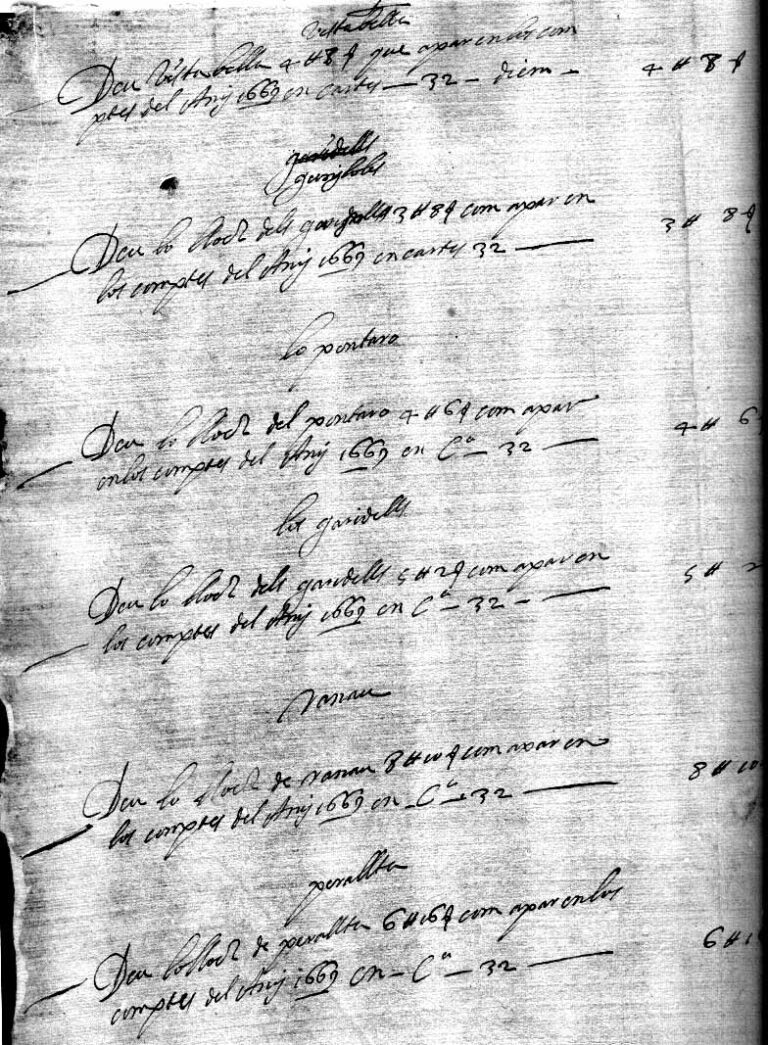 Vistabella
Deu Vistabella 4 ⵌ 8 ꝭ que apar en los com
ptes del Any 1669 en cartes — 32 — diem — 4 ⵌ 8 ꝭ
garidells
Deu lo lloch dels 3 ⵌ 8 ꝭ com apar en
los comptes del Any 1669 en cartes 32 — 3 ⵌ 8 ꝭ
lo pontarro
Deu lo lloch del pontarro 4 ⵌ 6 ꝭ com apar
en los comptes del Any 1669 en Cᵃ — 32 — 4 ⵌ 6
los garidells
Deu lo lloch dels garidells 5 ⵌ 2 ꝭ com apar en
los comptes del Any 1669 en Cᵃ — 32 — 5 ⵌ 2
ranau
Deu lo lloch de ranau 8 ⵌ 10 ꝭ com apar en
los comptes del Any 1669 en Cᵃ — 32 — 8 ⵌ 10
perallta
Deu lo lloch de perallta 6 ⵌ 16 ꝭ com apar en los
comptes del Any 1669 en — Cᵃ — 32 — 6 ⵌ 1